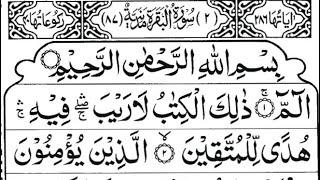 اٰیَاتُهَا ۲۸۶ (۲) سُوْرَةُ الْبَقَرَةِ مَدَنِیَّةٌ (۸۷) رُكُوْعَاتُهَا ۴۰
بِسْمِ اللّٰهِ الرَّحْمٰنِ الرَّحِیْمِ
الٓمّٓ ۚ‏ ۝۱ ذٰلِكَ الْكِتٰبُ لَا رَیْبَ ۛۖ فِیْهِ ۛۚ
هُدًی لِّلْمُتَّقِیْنَ ۙ‏ ۝۲ الَّذِیْنَ یُؤْمِنُوْنَ